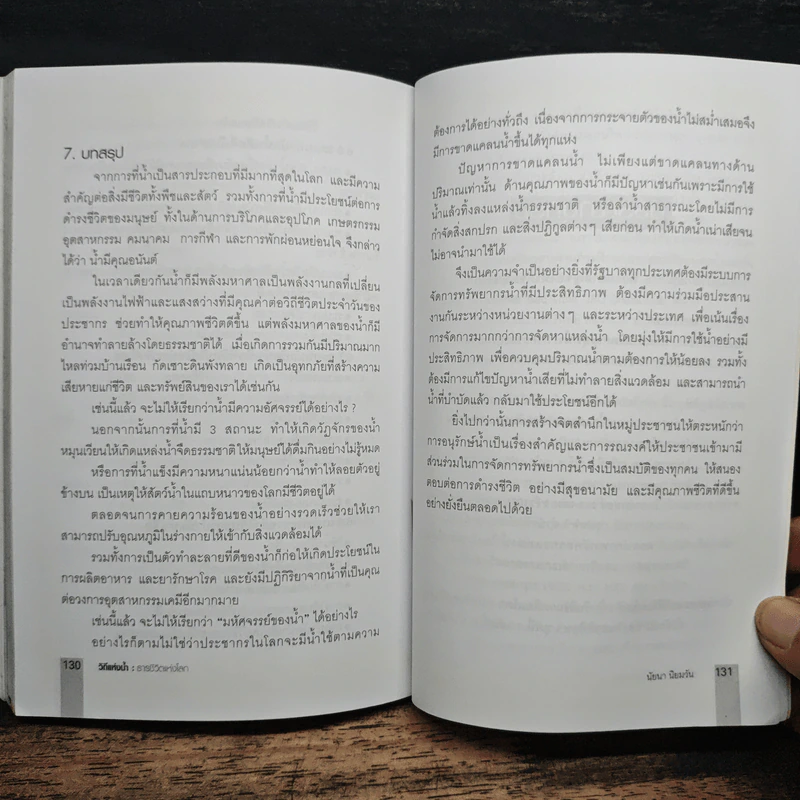 7. บทสรุป
จากการที่น้ำเป็นสารประกอบที่มีมากที่สุดในโลก และมีความ
สำคัญต่อสิ่งมีชีวิตทั้งพืชและสัตว์ รวมทั้งการที่น้ำมีประโยชน์ต่อการ
ดำรงชีวิตของมนุษย์ ทั้งในด้านการบริโภคและอุปโภค เกษตรกรรม
อุตสาหกรรม คมนาคม การกีฬา และการพักผ่อนหย่อนใจ จึงกล่าว
ได้ว่า น้ำมีคุณอนันต์
ในเวลาเดียวกันน้ำก็มีพลังมหาศาลเป็นพลังงานกลที่เปลี่ยน
เป็นพลังงานไฟฟ้าและแสงสว่างที่มีคุณค่าต่อวิถีชีวิตประจำวันของ
ประชากร ช่วยทำให้คุณภาพชีวิตดีขึ้น แต่พลังมหาศาลของน้ำก็มี
อำนาจทำลายล้างโดยธรรมชาติได้ เมื่อเกิดการรวมกันมีปริมาณมาก
ไหลท่วมบ้านเรือน กัดเซาะดินพังทลาย เกิดเป็นอุทกภัยที่สร้างความ
เสียหายแก่ชีวิต และทรัพย์สินของเราได้เช่นกัน
เช่นนี้แล้ว จะไม่ให้เรียกว่าน้ำมีความอัศจรรย์ได้อย่างไร ?
นอกจากนั้นการที่น้ำมี 3 สถานะ ทำให้เกิดวัฏจักรของน้ำ
หมุนเวียนให้เกิดแหล่งน้ำจืดธรรมชาติให้มนุษย์ได้ดื่มกินอย่างไม่รู้หมด
หรือการที่น้ำแข็งมีความหนาแน่นน้อยกว่าน้ำทำให้ลอยตัวอยู่
ข้างบน เป็นเหตุให้สัตว์น้ำในแถบหนาวของโลกมีชีวิตอยู่ได้
ตลอดจนการคายความร้อนของน้ำอย่างรวดเร็วช่วยให้เรา
สามารถปรับอุณหภูมิในร่างกายให้เข้ากับสิ่งแวดล้อมได้
รวมทั้งการเป็นตัวทำละลายที่ดีของน้ำก็ก่อให้เกิดประโยชน์ใน
การผลิตอาหาร และยารักษาโรค และยังมีปฏิกิริยาจากน้ำที่เป็นคุณ
ต่อวงการอุตสาหกรรมเคมีอีกมากมาย
เช่นนี้แล้ว จะไม่ให้เรียกว่า "มหัศจรรย์ของน้ำ" ได้อย่างไร
อย่างไรก็ตามไม่ใช่ว่าประชากรในโลกจะมีน้ำใช้ตามความ
130 วิถีแห่งน้ำ : ธารชีวิตแห่งโลก
ต้องการได้อย่างทั่วถึง เนื่องจากการกระจายตัวของน้ำไม่สม่ำเสมอจึง
มีการขาดแคลนน้ำขึ้นได้ทุกแห่ง
ปัญหาการขาดแคลนน้ำ ไม่เพียงแต่ขาดแคลนทางด้าน
ปริมาณเท่านั้น ด้านคุณภาพของน้ำก็มีปัญหาเช่นกันเพราะมีการใช้
น้ำแล้วทิ้งลงแหล่งน้ำธรรมชาติ หรือลำน้ำสาธารณะโดยไม่มีการ
กำจัดสิ่งสกปรก และสิ่งปฏิกูลต่างๆ เสียก่อน ทำให้เกิดน้ำเน่าเสียจน
ไม่อาจนำมาใช้ได้
จึงเป็นความจำเป็นอย่างยิ่งที่รัฐบาลทุกประเทศต้องมีระบบการ
จัดการทรัพยากรน้ำที่มีประสิทธิภาพ ต้องมีความร่วมมือประสาน
งานกันระหว่างหน่วยงานต่างๆ และระหว่างประเทศ เพื่อเน้นเรื่อง
การจัดการมากกว่าการจัดหาแหล่งน้ำ โดยมุ่งให้มีการใช้น้ำอย่างมี
ประสิทธิภาพ เพื่อควบคุมปริมาณน้ำตามต้องการให้น้อยลง รวมทั้ง
ต้องมีการแก้ไขปัญหาน้ำเสียที่ไม่ทำลายสิ่งแวดล้อม และสามารถนำ
น้ำที่บำบัดแล้ว กลับมาใช้ประโยชน์อีกได้
ยิ่งไปกว่านั้นการสร้างจิตสำนึกในหมู่ประชาชนให้ตระหนักว่า
การอนุรักษ์น้ำเป็นเรื่องสำคัญและการรณรงค์ให้ประชาชนเข้ามามี
ส่วนร่วมในการจัดการทรัพยากรน้ำซึ่งเป็นสมบัติของทุกคน ให้สนอง
ตอบต่อการดำรงชีวิต อย่างมีสุขอนามัย และมีคุณภาพชีวิตที่ดีขึ้น
อย่างยั่งยืนตลอดไปด้วย
นัยนา นิยมวัน 131